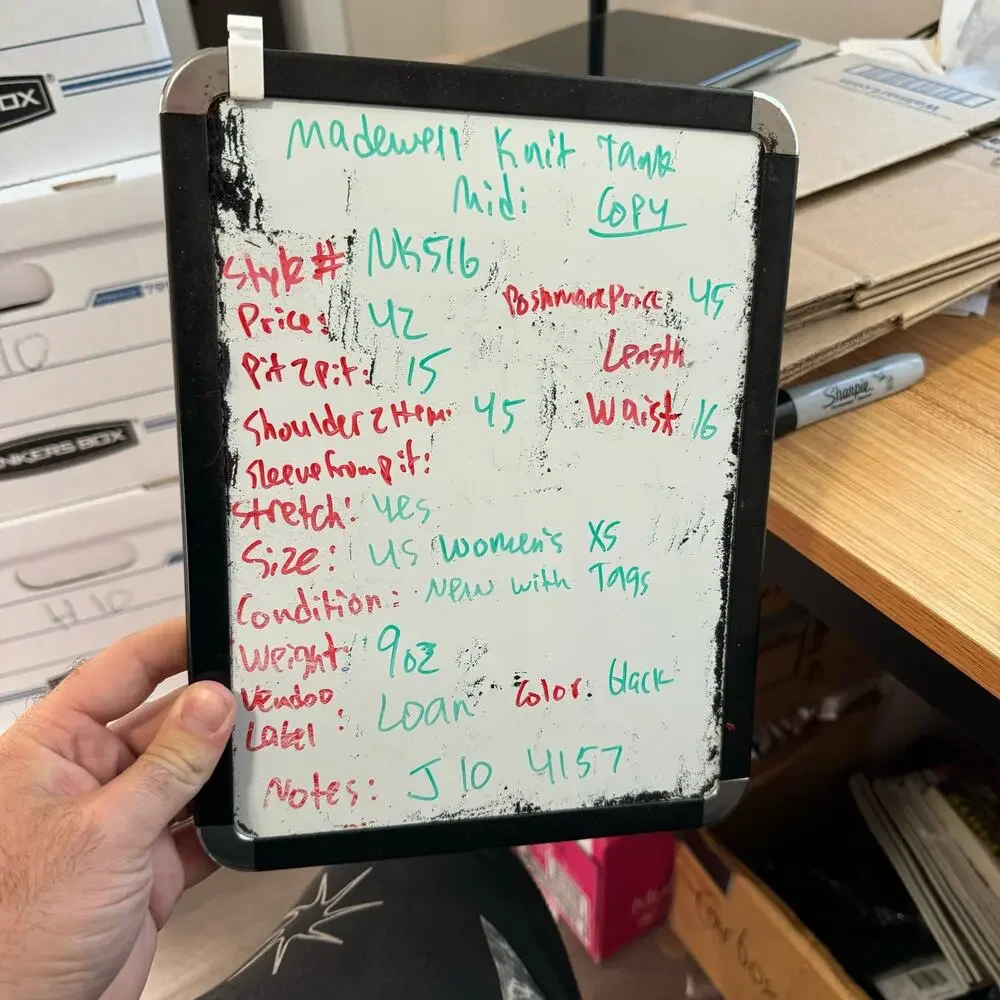 Madewell Knit Tank
Midi Copy
Style# NK516
Poshmark Price: 45
Price: 42
Length
Pit 2 pit: 15
Shoulder 2 Hem: 45
Waist 16
Sleeve from pit:
Stretch: yes
Size: US Women's XS
Condition: New with Tags
Weight: 9oz
Vendoo
Label: Loan
Color: black
Notes: J 10 4157
Sharpie
NKERS BOX
OX
H 10
10